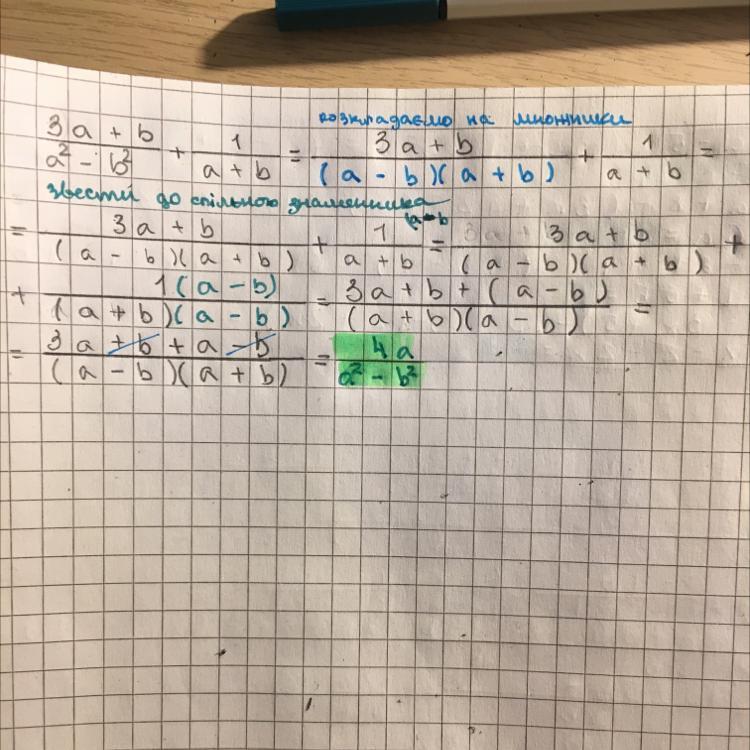 розкладаємо на множники
(3a + b)/(a² - b²) + 1/(a + b) = (3a + b)/((a - b)(a + b)) + 1/(a + b) =
звести до спільного знаменника
= (3a + b)/((a - b)(a + b)) + 1/(a + b) (a-b = (3a + b)/((a - b)(a + b)) +
+ 1(a - b)/((a + b)(a - b)) = (3a + b + (a - b))/((a + b)(a - b)) =
= (3a + b + a - b)/((a - b)(a + b)) = 4a/(a² - b²)